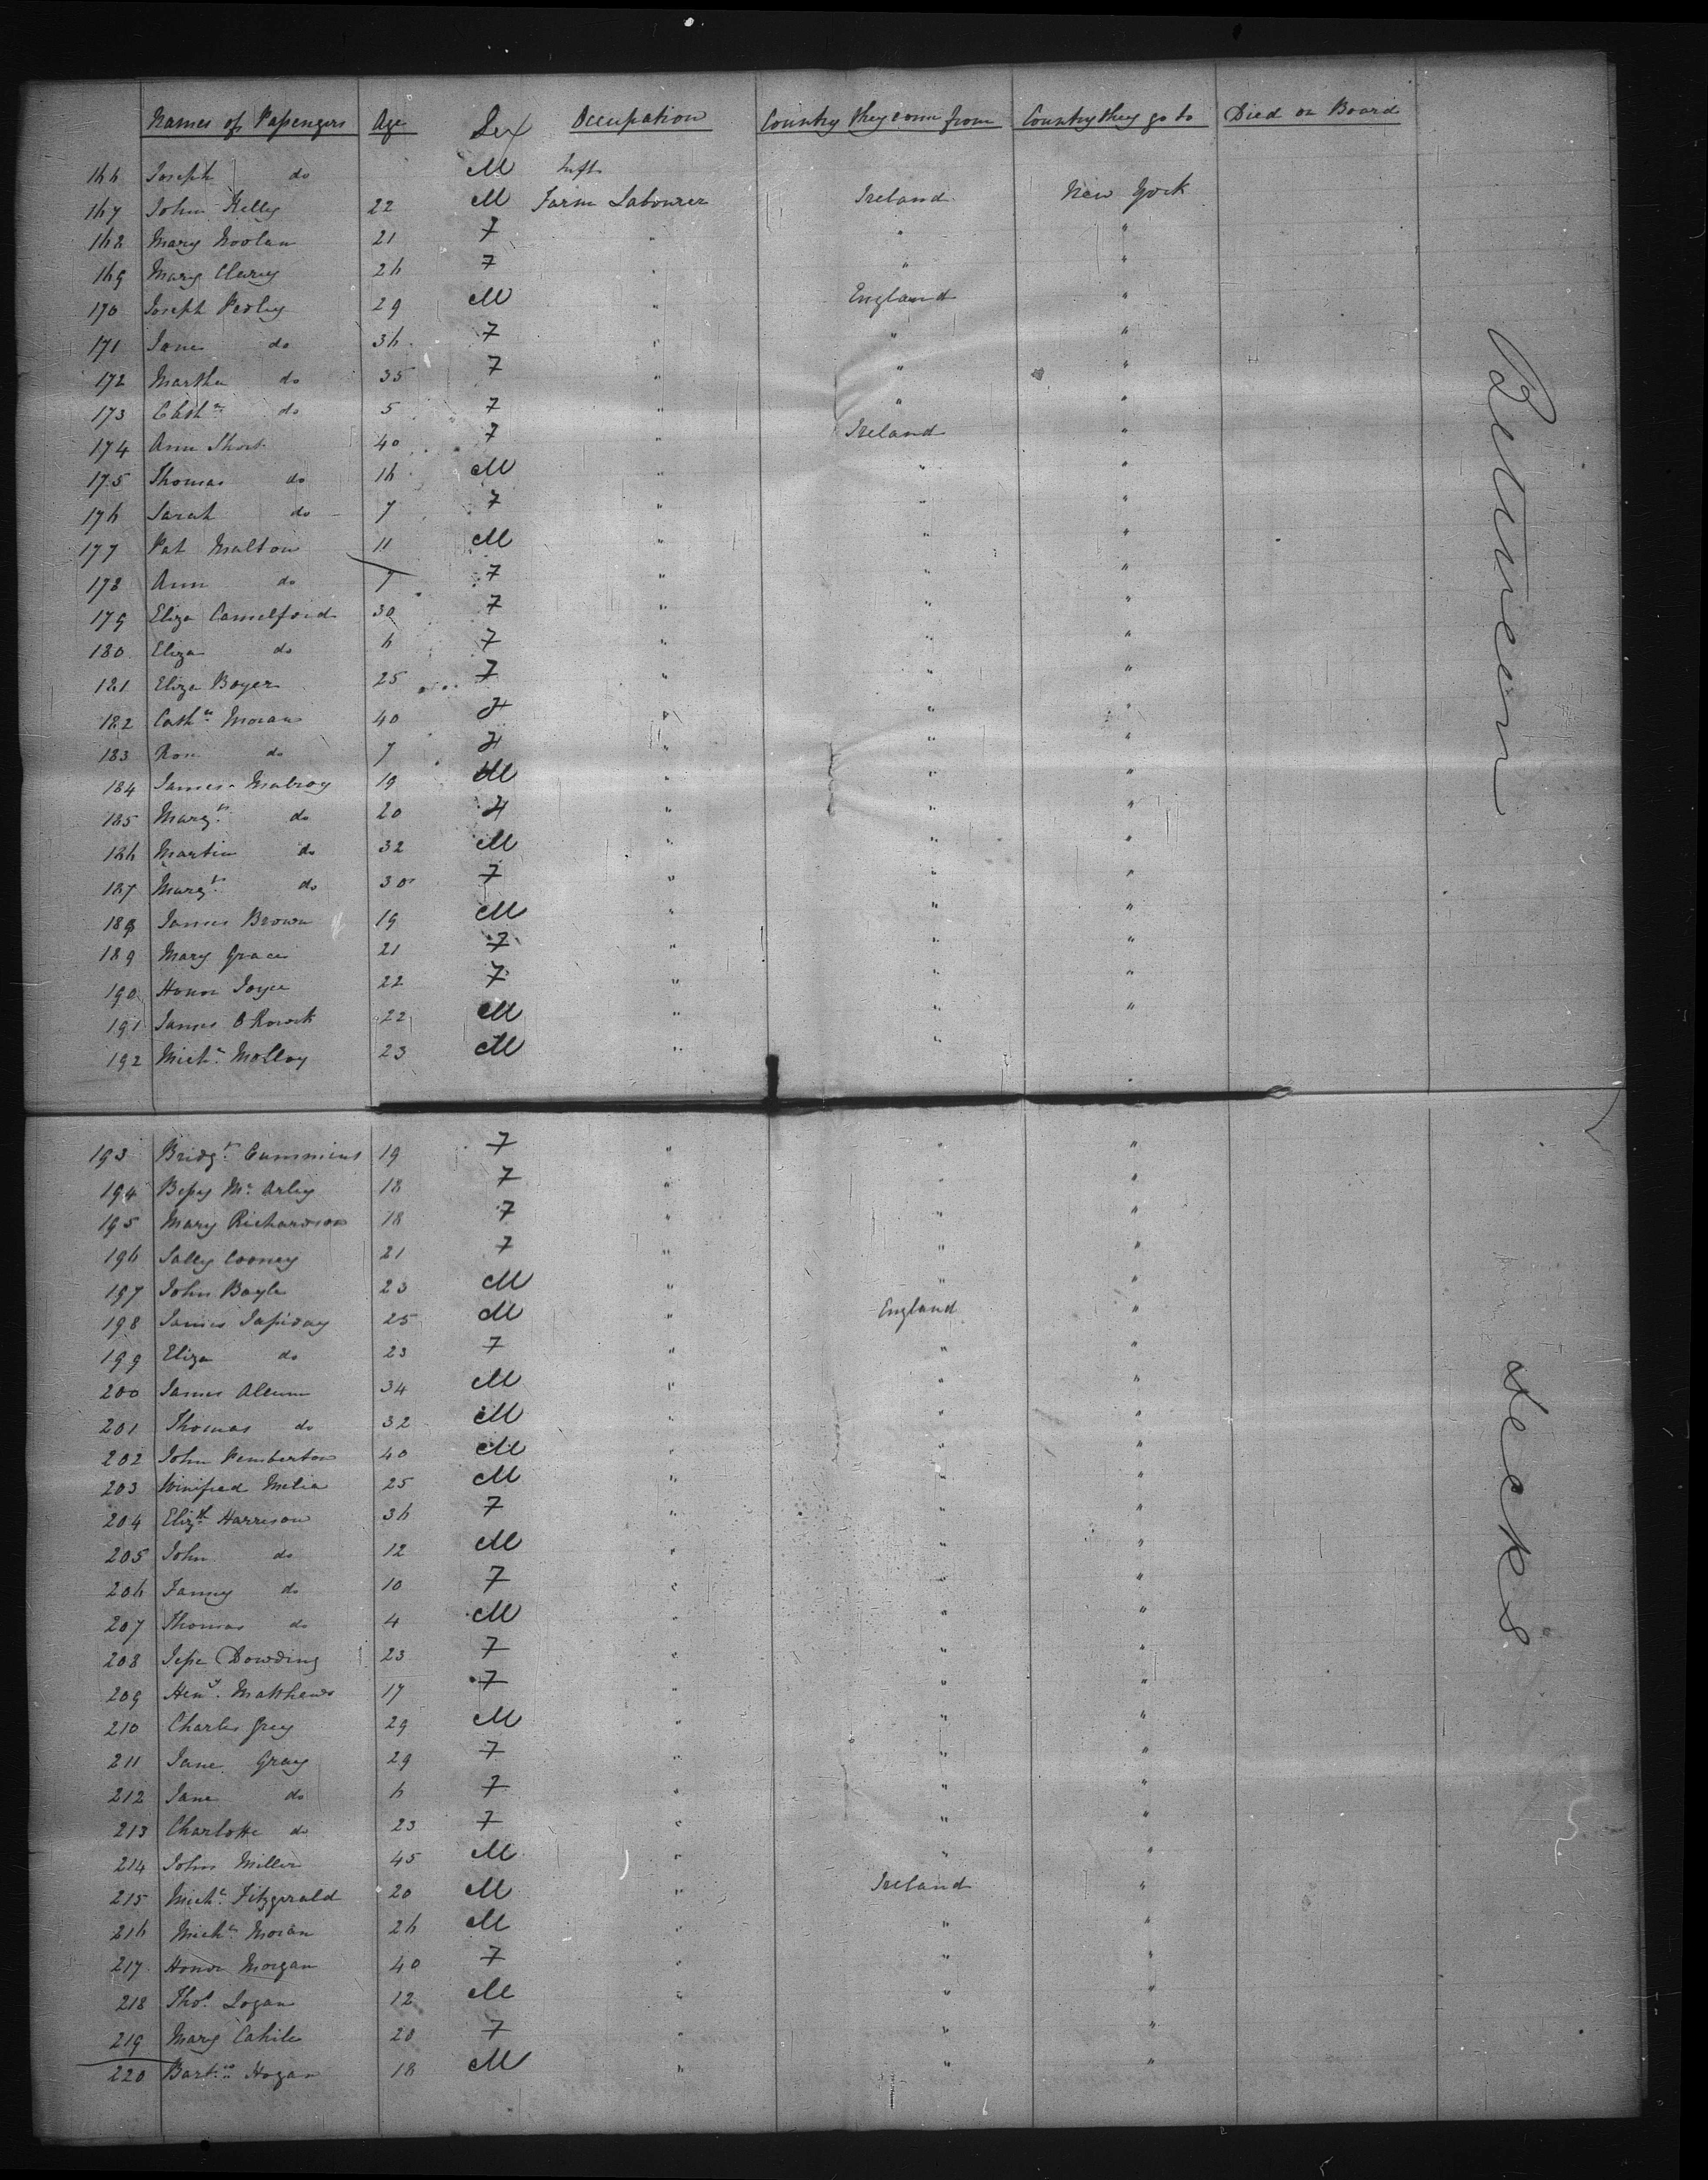 Names of Passengers Age Sex Occupation Country they come from Country they go to Died on Board
166 Joseph do M Inft
167 John Kelly 22 M Farm Labourer Ireland New York
168 Mary Noolan 21 F " " "
169 Mary Clary 26 F " " "
170 Joseph Perley 29 M " England "
171 Jane do 36 F " " "
172 Martha do 35 F " " "
173 do 5 F " " "
174 Ann Short 40 F " Ireland "
175 Thomas do 16 M " " "
176 Sarah do 7 F " " "
177 Pat Malton 11 M " " "
178 Ann do 7 F " " "
179 Eliza Camelford 30 F " " "
180 Eliza do 6 F " " "
181 Eliza Boyer 25 F " " "
182 Cathn Moran 40 F " " "
183 Rose do 7 F " " "
184 James Mulroy 19 M " " "
185 Margt do 20 F " " "
186 Martin do 32 M " " "
187 Margt do 30 F " " "
188 James Brown 19 M " " "
189 Mary Grace 21 F " " "
190 Honor Joyce 22 F " " "
191 James O Rourk 22 M " " "
192 Michl Molloy 23 M " "
193 Bridgt Cummins 19 F " " "
194 Bessy Mc Arley 18 F " " "
195 Mary Richardson 18 F " " "
196 Sally Cooney 21 F " " "
197 John Boyle 23 M " " "
198 James 25 M " England "
199 Eliza do 23 F " " "
200 James Allum 34 M " " "
201 Thomas do 32 M " " "
202 John Pemberton 40 M " " "
203 Winifred Melia 25 M " " "
204 Elizth Harrison 36 F " " "
205 John do 12 M " " "
206 Fanny do 10 F " " "
207 Thomas do 4 M " " "
208 Jesse Dowding 23 F " " "
209 Heny Matthews 17 F " " "
210 Charles Grey 29 M " " "
211 Jane Gray 29 F " " "
212 Jane do 6 F " " "
213 Charlotte do 23 F " " "
214 John Miller 45 M " " "
215 Michl Fitzgerald 20 M " Ireland "
216 Michl Moran 26 M " " "
217 Honor Morgan 40 F " " "
218 Thos Logan 12 M " " "
219 Mary Cahile 20 F " " "
220 Bartw Hogan 18 M " " "
Between
decks